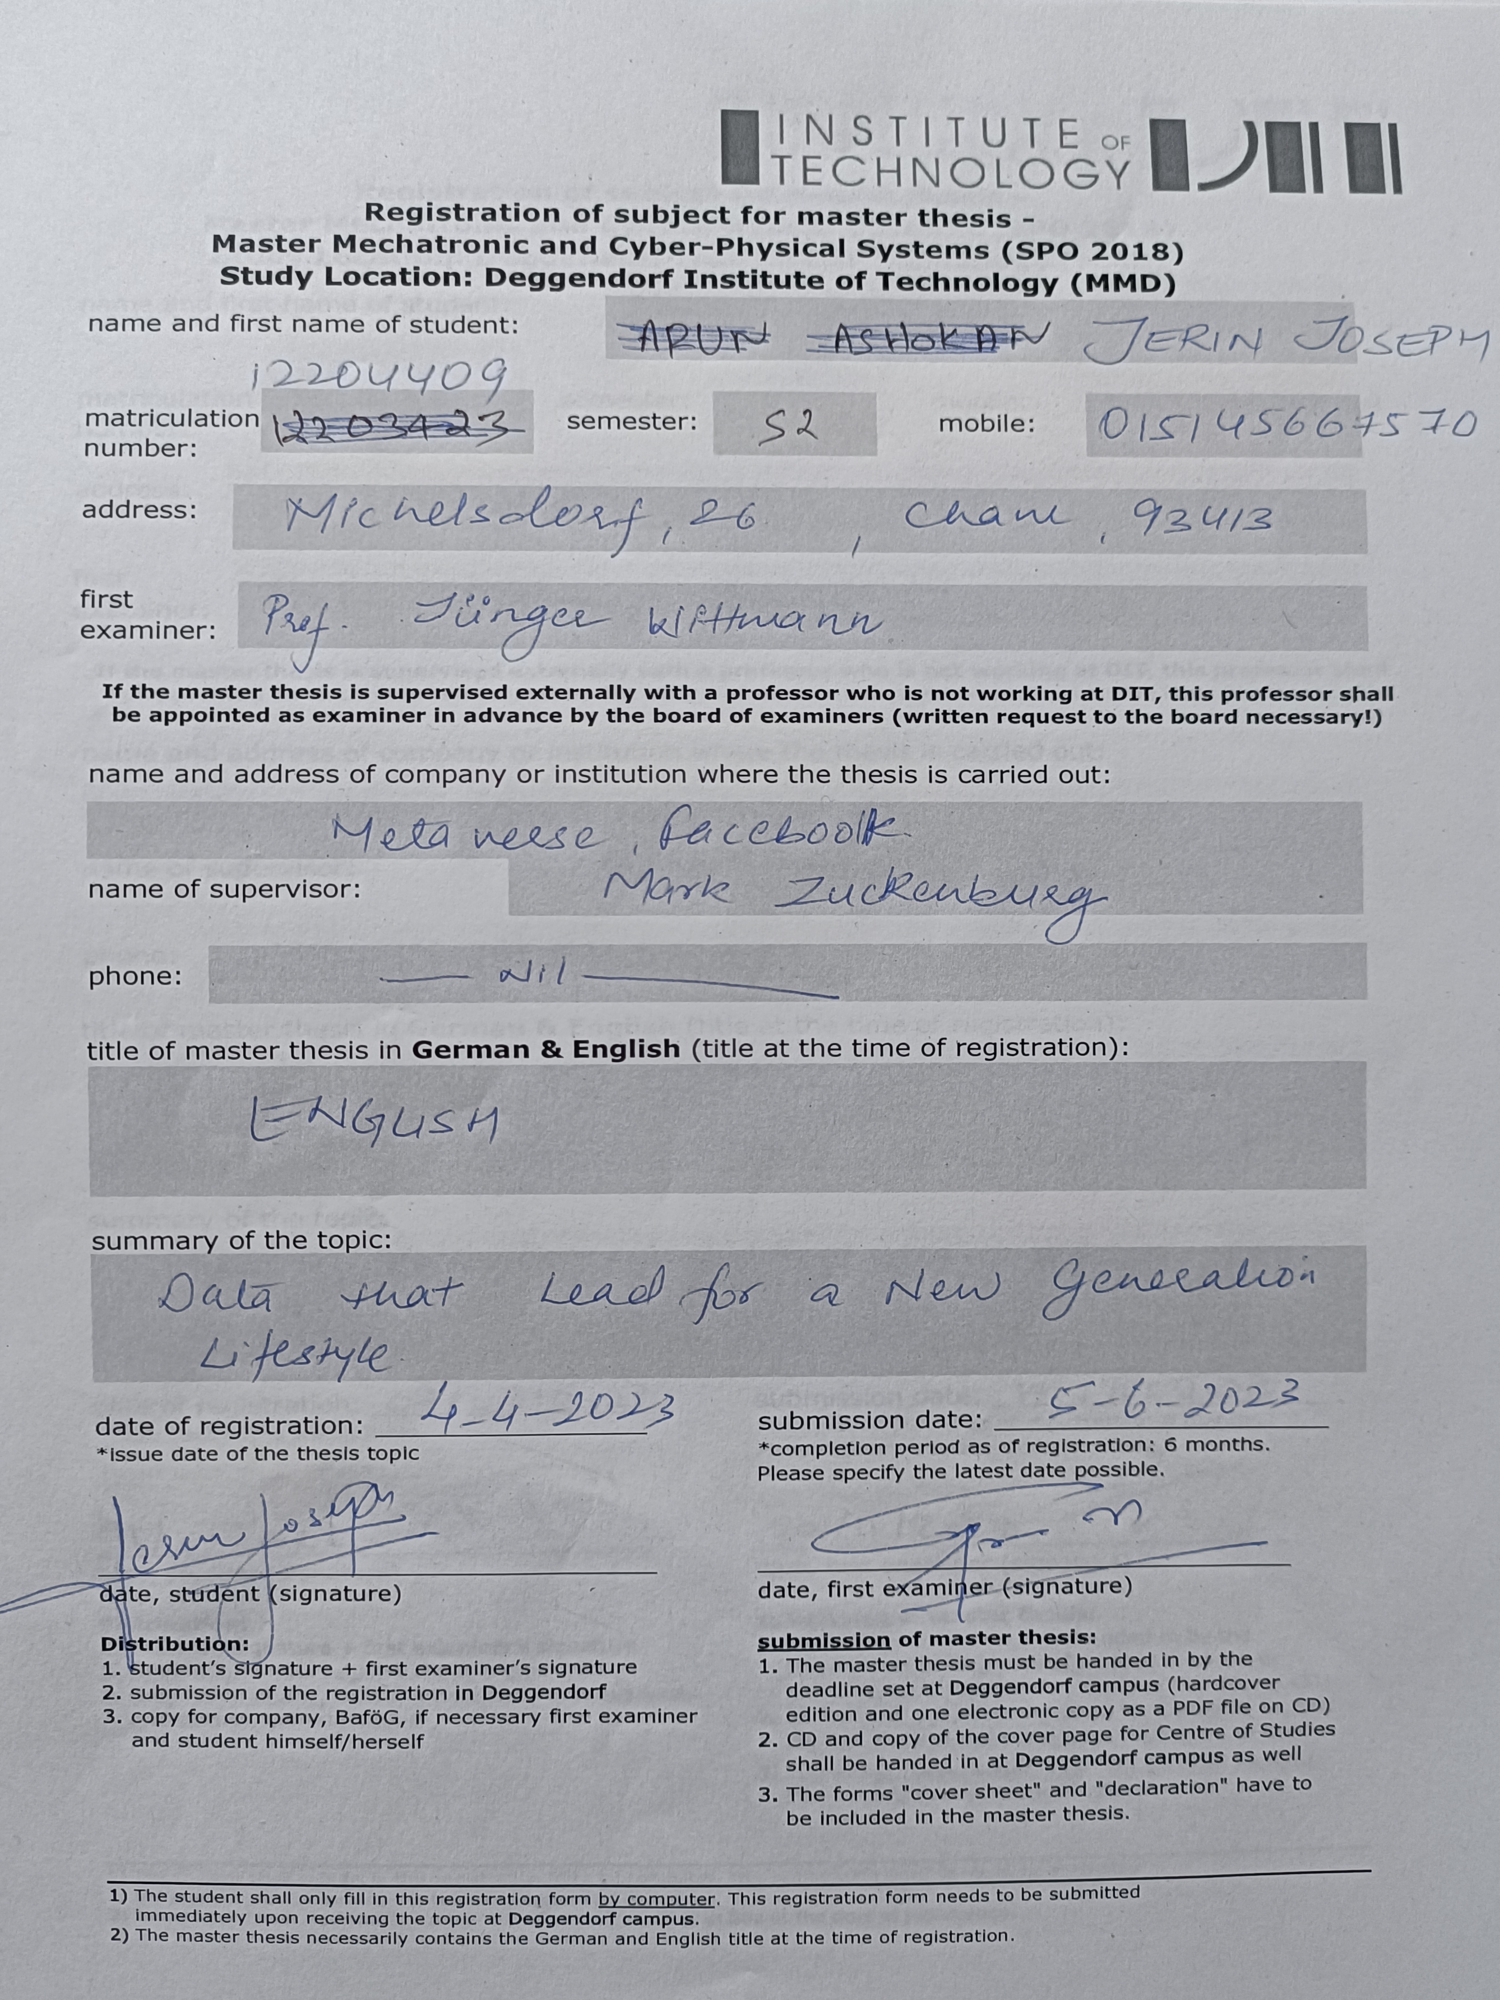 INSTITUTE OF
TECHNOLOGY
Registration of subject for master thesis -
Master Mechatronic and Cyber-Physical Systems (SPO 2018)
Study Location: Deggendorf Institute of Technology (MMD)
name and first name of student: ARUN ASHOKAN JERIN JOSEPH
12204409
matriculation number: 12203423 semester: S2 mobile: 015145667570
address: Michelsdorf, 26, Cham, 93413
first examiner: Prof. Jünger Wittmann
If the master thesis is supervised externally with a professor who is not working at DIT, this professor shall
be appointed as examiner in advance by the board of examiners (written request to the board necessary!)
name and address of company or institution where the thesis is carried out:
Metaverse, facebook.
name of supervisor: Mark Zuckenburg
phone: — Nil —
title of master thesis in German & English (title at the time of registration):
ENGLISH
summary of the topic:
Data that Lead for a New Generation
Lifestyle
date of registration: 4-4-2023 submission date: 5-6-2023
*issue date of the thesis topic
*completion period as of registration: 6 months.
Please specify the latest date possible.
Jerin Joseph
date, student (signature)
date, first examiner (signature)
Distribution:
1. student's signature + first examiner's signature
2. submission of the registration in Deggendorf
3. copy for company, BaföG, if necessary first examiner
and student himself/herself
submission of master thesis:
1. The master thesis must be handed in by the
deadline set at Deggendorf campus (hardcover
edition and one electronic copy as a PDF file on CD)
2. CD and copy of the cover page for Centre of Studies
shall be handed in at Deggendorf campus as well
3. The forms "cover sheet" and "declaration" have to
be included in the master thesis.
1) The student shall only fill in this registration form by computer. This registration form needs to be submitted
immediately upon receiving the topic at Deggendorf campus.
2) The master thesis necessarily contains the German and English title at the time of registration.